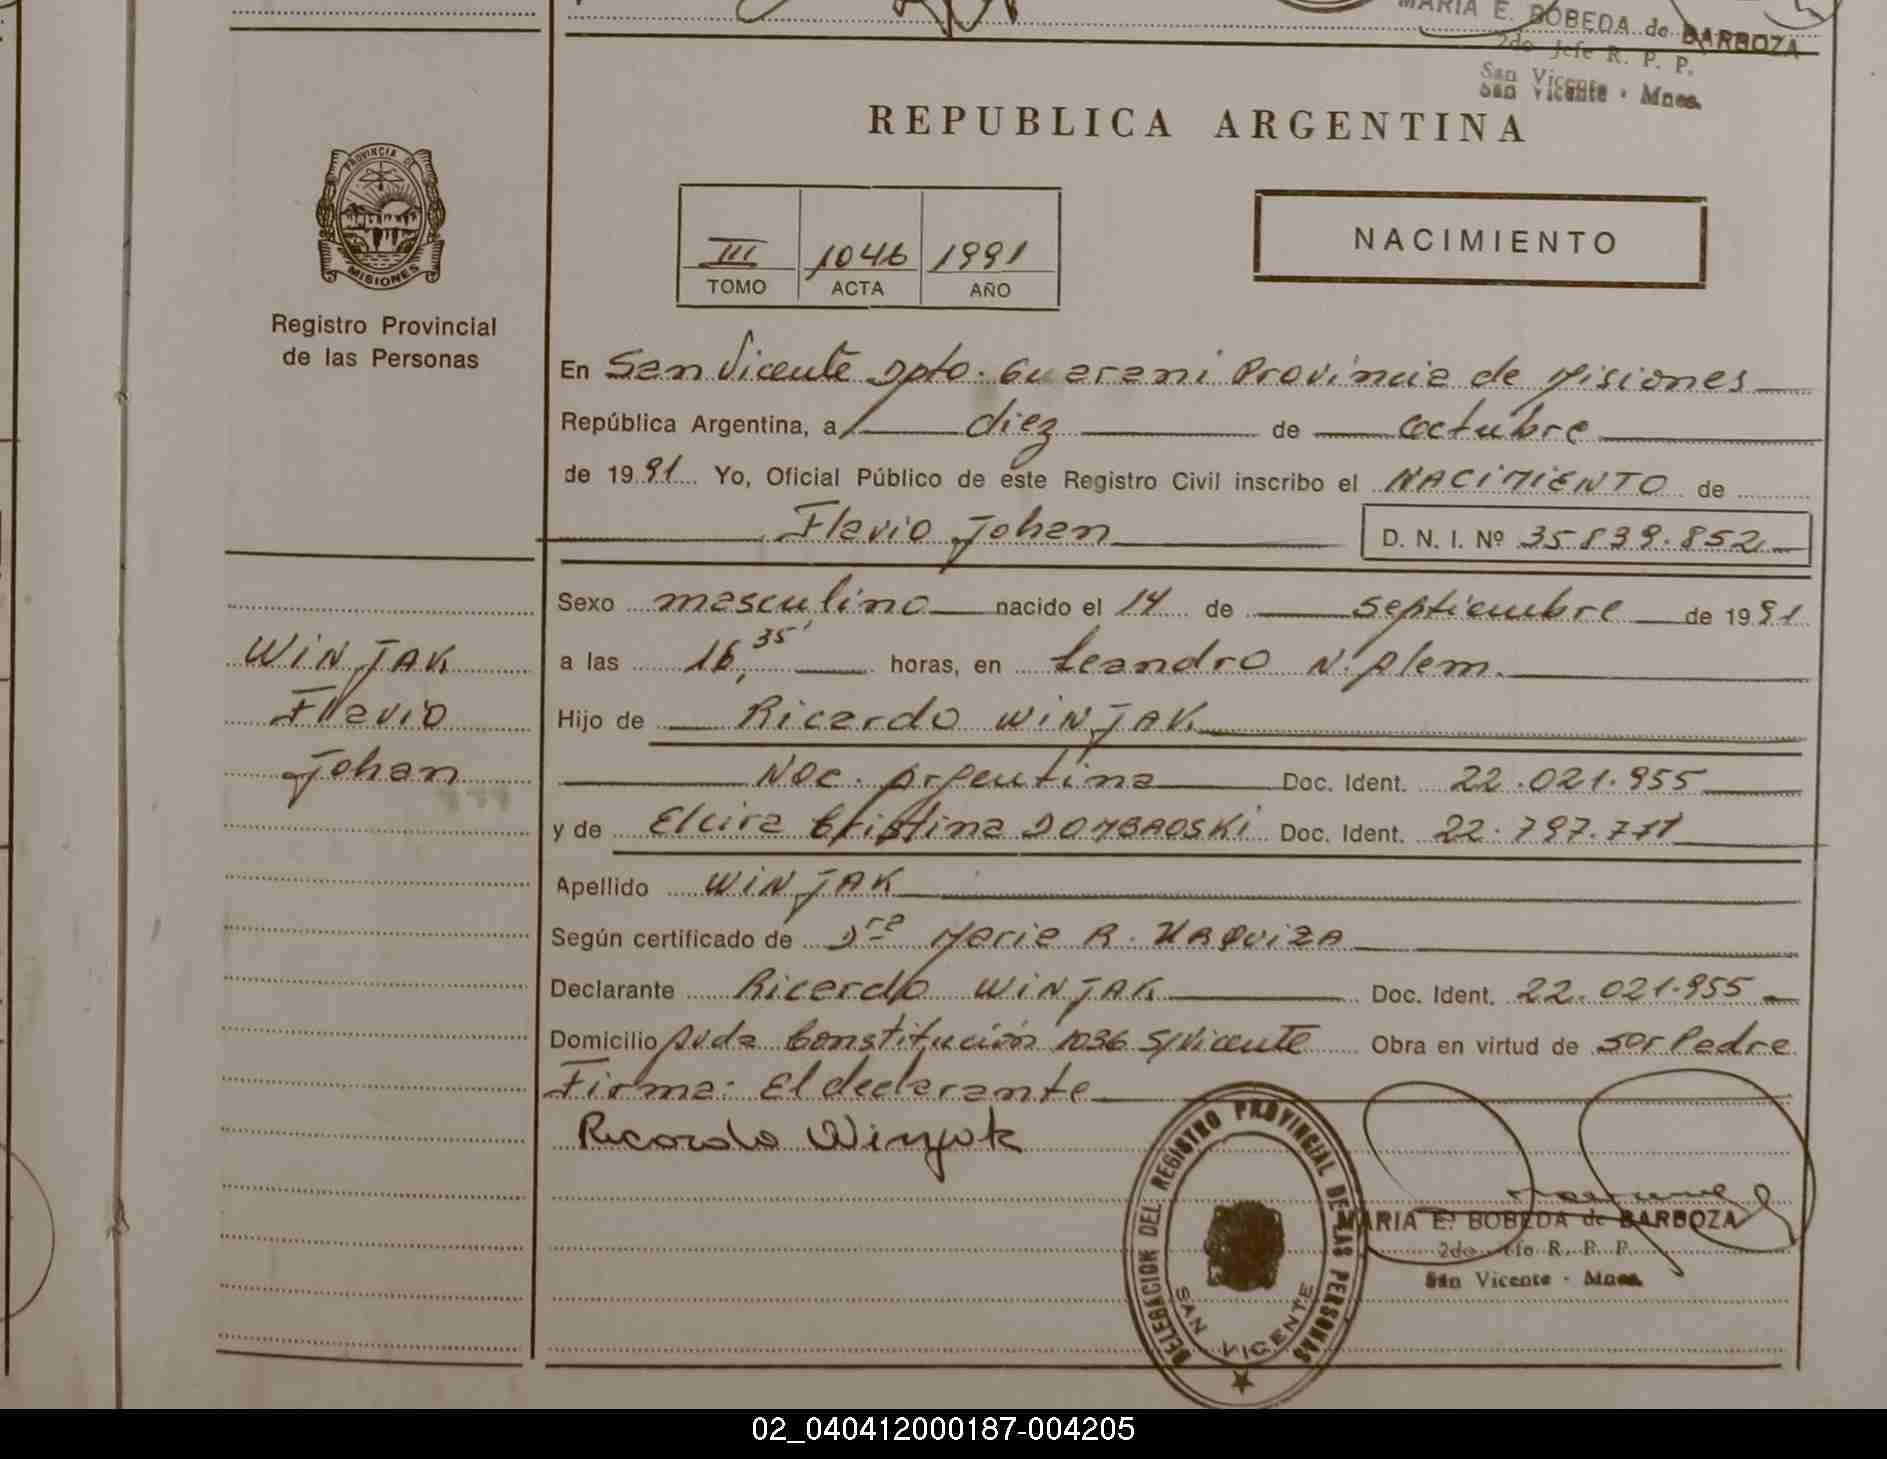 MARIA E. BOBEDA de BARBOZA
2do Jefe R. P. P.
San Vicente
San Vicente - Mnes.
REPUBLICA ARGENTINA
PROVINCIA DE
MISIONES
Registro Provincial
de las Personas
III 1046 1991
TOMO ACTA AÑO
NACIMIENTO
En San Vicente Dpto. Guarani Provincia de Misiones
República Argentina, a diez de octubre
de 1991 Yo, Oficial Público de este Registro Civil inscribo el NACIMIENTO de
Flavio Johan D. N. I. Nº 35.839.852
Sexo masculino nacido el 14 de septiembre de 1991
a las 16,35' horas, en Leandro N. Alem.
Hijo de Ricardo WINJAK
Nac. Argentina Doc. Ident. 22.021.955
y de Elvira Cristina DOMBROSKI Doc. Ident. 22.797.711
Apellido WINJAK
Según certificado de Dra Maria R. URQUIZA
Declarante Ricardo WINJAK Doc. Ident. 22.021.955
Domicilio Avda Constitución 1036 S/Vicente Obra en virtud de ser Padre
Firma: El declarante
Ricardo Winjak
WINJAK
Flavio
Johan
DELEGACION DEL REGISTRO PROVINCIAL DE LAS PERSONAS
SAN VICENTE
MARIA E. BOBEDA de BARBOZA
2do Jefe R. P. P.
San Vicente - Mnes.
02_040412000187-004205